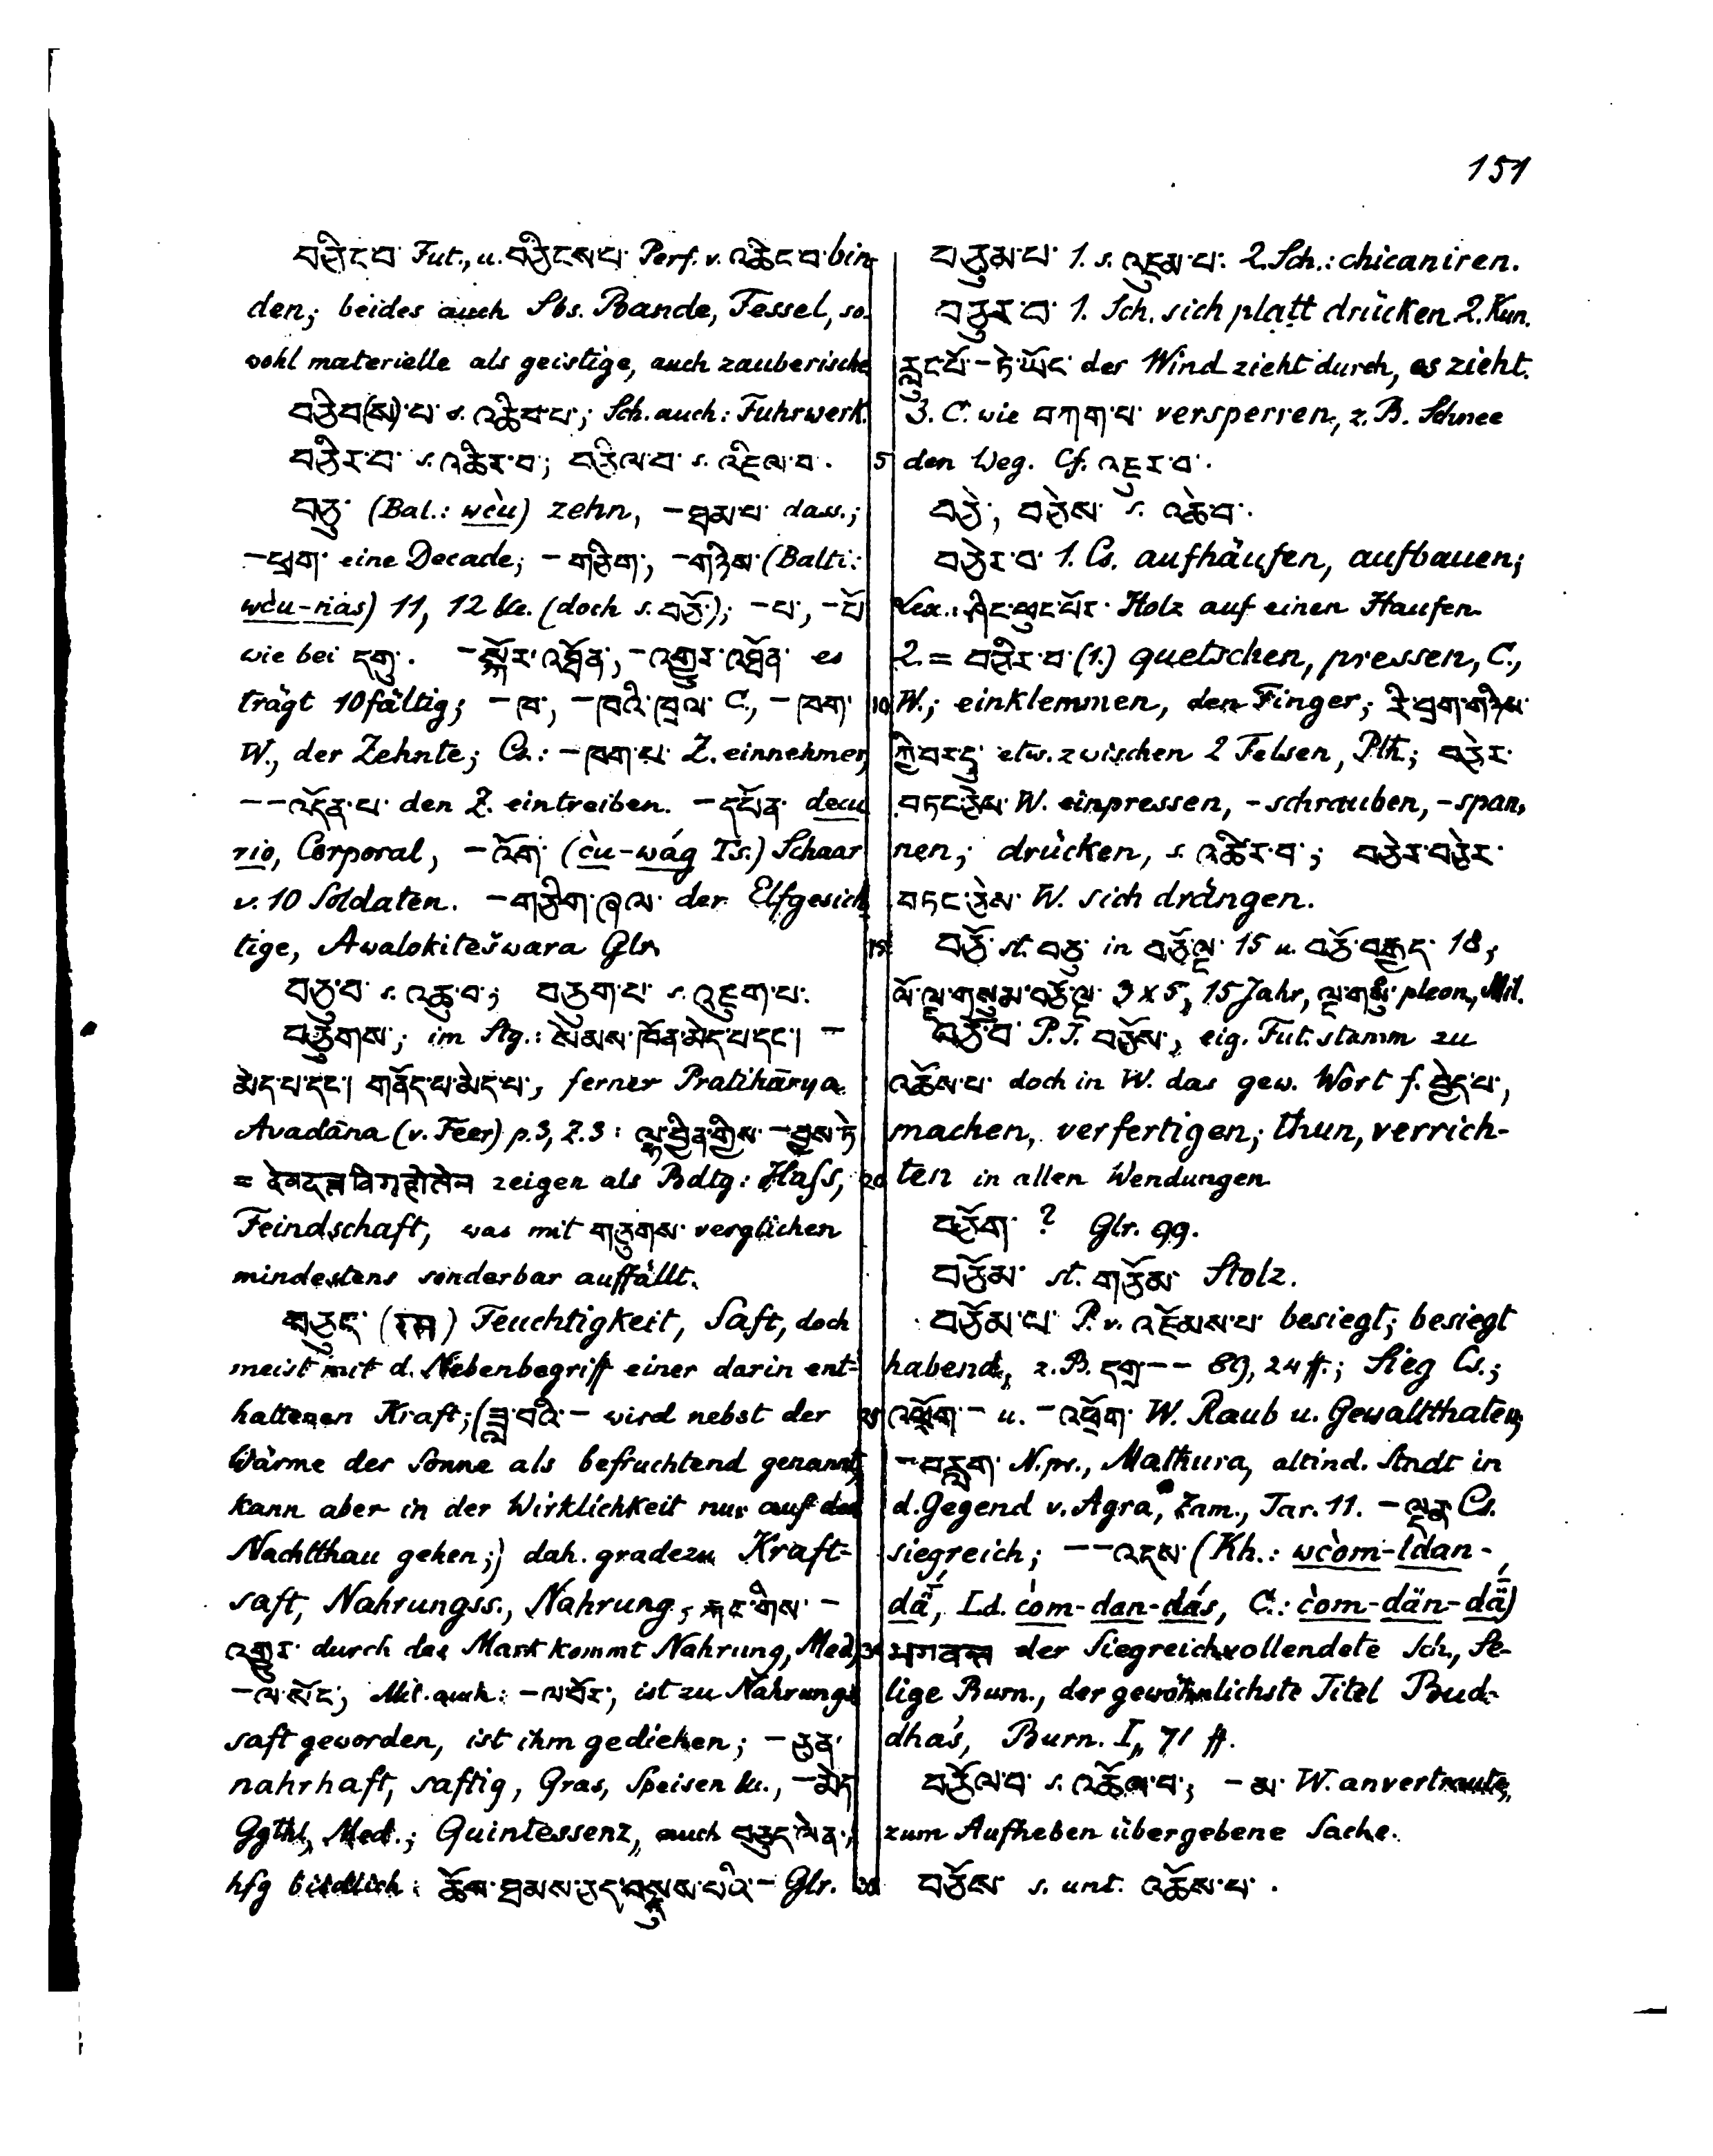 151
བཅིང་བ་ Fut., u. བཅིངས་པ་ Perf. v. འཆིང་བ་ bin-
den; beides auch Sbs. Bande, Fessel, so-
wohl materielle als geistige, auch zauberische
བཅིབ(ས)་པ་ s. འཆིབ་པ་; Sch. auch: Fuhrwerk.
བཅིར་བ་ s. འཆིར་བ་; བཅིལ་བ་ s. འཇིལ་བ་.
བཅུ་ (Bal.: wc̀u) zehn, –ཐམ་པ་ dass.;
–ཕྲག་ eine Decade; –གཅིག་, –གཉིས་ (Balti:
wc̀u-nas) 11, 12 &c. (doch s. བཅོ་); –པ་, –པོ་
wie bei དགུ་. –སྐོར་འཐོན་, –འགྱུར་འཐོན་ es
trägt 10fältig; –ཁ་, –ཁའི་ཁྲལ་ C., –ཁག་
W., der Zehnte; Cs.: –ཁག་པ་ Z. einnehmer,
––འདོན་པ་ den Z. eintreiben. –དཔོན་ decu
rio, Corporal, –འོག་ (c̀u-wág Ts.) Schaar
v. 10 Soldaten. –གཅིག་ཞལ་ der Elfgesich
tige, Awalokiteśwara Glr.
བཅུ་བ་ s. འཆུ་བ་; བཅུག་པ་ s. འཇུག་པ་.
བཅུགས་; im Stg.: སེམས་ཁོན་མེད་པ་དང་། –
མེད་པ་དང་། གནོད་པ་མེད་པ་, ferner Pratihārya
Avadāna (v. Feer) p. 3, Z. 3: ལྷ་སྦྱིན་གྱིས་ –བྱས་ཏེ
= zeigen als Bdtg: Hass,
Feindschaft, was mit གཅུགས་ verglichen
mindestens sonderbar auffällt.
བཅུད་ (रस) Feuchtigkeit, Saft, doch
meist mit d. Nebenbegriff einer darin ent-
haltenen Kraft; (ཟླ་བའི་ – wird nebst der
Wärme der Sonne als befruchtend genannt,
kann aber in der Wirklichkeit nur auf den
Nachtthau gehen;) dah. gradezu Kraft-
saft, Nahrungss., Nahrung; རྐང་གིས་ –
འགྱུར་ durch das Mark kommt Nahrung, Med.
–ལ་སོང་, Mil. auch: –ལ་བོར་, ist zu Nahrungs
saft geworden, ist ihm gediehen; –ཅན་
nahrhaft, saftig, Gras, Speisen &c., –མེད་
Ggthl, Med.; Quintessenz, auch བཅུད་ལེན་,
hfg bildlich: ཆོས་ཐམས་ཅད་བསྡུས་པའི་ – Glr.
བཅུམ་པ་ 1. s. འཇུམ་པ་. 2. Sch.: chicaniren.
བཅུར་བ་ 1. Sch. sich platt drücken 2. Kun.
རླུང་པོ་ –ཏེ་ཡོང་ der Wind zieht durch, es zieht.
3. C. wie བཀག་པ་ versperren, z. B. Schnee
den Weg. Cf. འཇུར་བ་.
བཅེ་, བཅེས་ s. འཆེ་བ་.
བཅེར་བ་ 1. Cs. aufhäufen, aufbauen;
Lex.: ཤིང་ཕུང་པོར་ Holz auf einen Haufen.
2. = བཅིར་བ་ (1.) quetschen, pressen, C.,
W.; einklemmen, den Finger; རི་བྲག་གཉིས་
ཀྱི་བར་དུ་ etw. zwischen 2 Felsen, Pth.; བཅེར་
བཏང་ཅེས་ W. einpressen, -schrauben, -span,
nen; drücken, s. འཆིར་བ་; བཅེར་བཅེར་
བཏང་ཅེས་ W. sich drängen.
བཅོ་ st. བཅུ་ in བཅོ་ལྔ་ 15 u. བཅོ་བརྒྱད་ 18;
ལོ་ལྔ་གསུམ་བཅོ་ལྔ་ 3 x 5, 15 Jahr, ལྔ་གསུམ་ pleon., Mil.
བཅོ་བ་ P. I. བཅོས་, eig. Fut. stamm zu
འཆོས་པ་ doch in W. das gew. Wort f. བྱེད་པ་,
machen, verfertigen; thun, verrich-
ten in allen Wendungen.
བཅོག་ ? Glr. 99.
བཅོམ་ st. གཅོམ་ Stolz.
བཅོམ་པ་ P. v. འཇོམས་པ་ besiegt; besiegt
habend, z. B. དགྲ་ –– 89, 24 ff.; Sieg Cs.;
འཕྲོག་ – u. –འཕྲོག་ W. Raub u. Gewaltthaten;
–བརླག་ N. pr., Mathura, altind. Stadt in
d. Gegend v. Agra, Zam., Tar. 11. –ལྡན་ Cs.
siegreich; ––འདས་ (Kh.: wc̀om-ldan-
dā́, Ld. c̀om-dan-dás, C.: c̀om-dän-dǟ́)
भगवान् der Siegreichvollendete Sch., Se-
lige Burn., der gewöhnlichste Titel Bud-
dha's, Burn. I, 71 ff.
བཅོལ་བ་ s. འཆོལ་བ་; –མ་ W. anvertraute,
zum Aufheben übergebene Sache.
བཅོས་ s. unt. འཆོས་པ་.